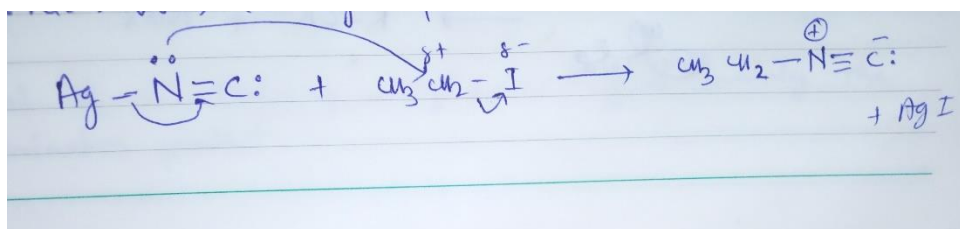 Ag - N̈ ≡ C: + CH₃ CH₂ - I ⟶ CH₃ CH₂ - N ≡ C̄:
δ+ δ- ⊕
+ AgI